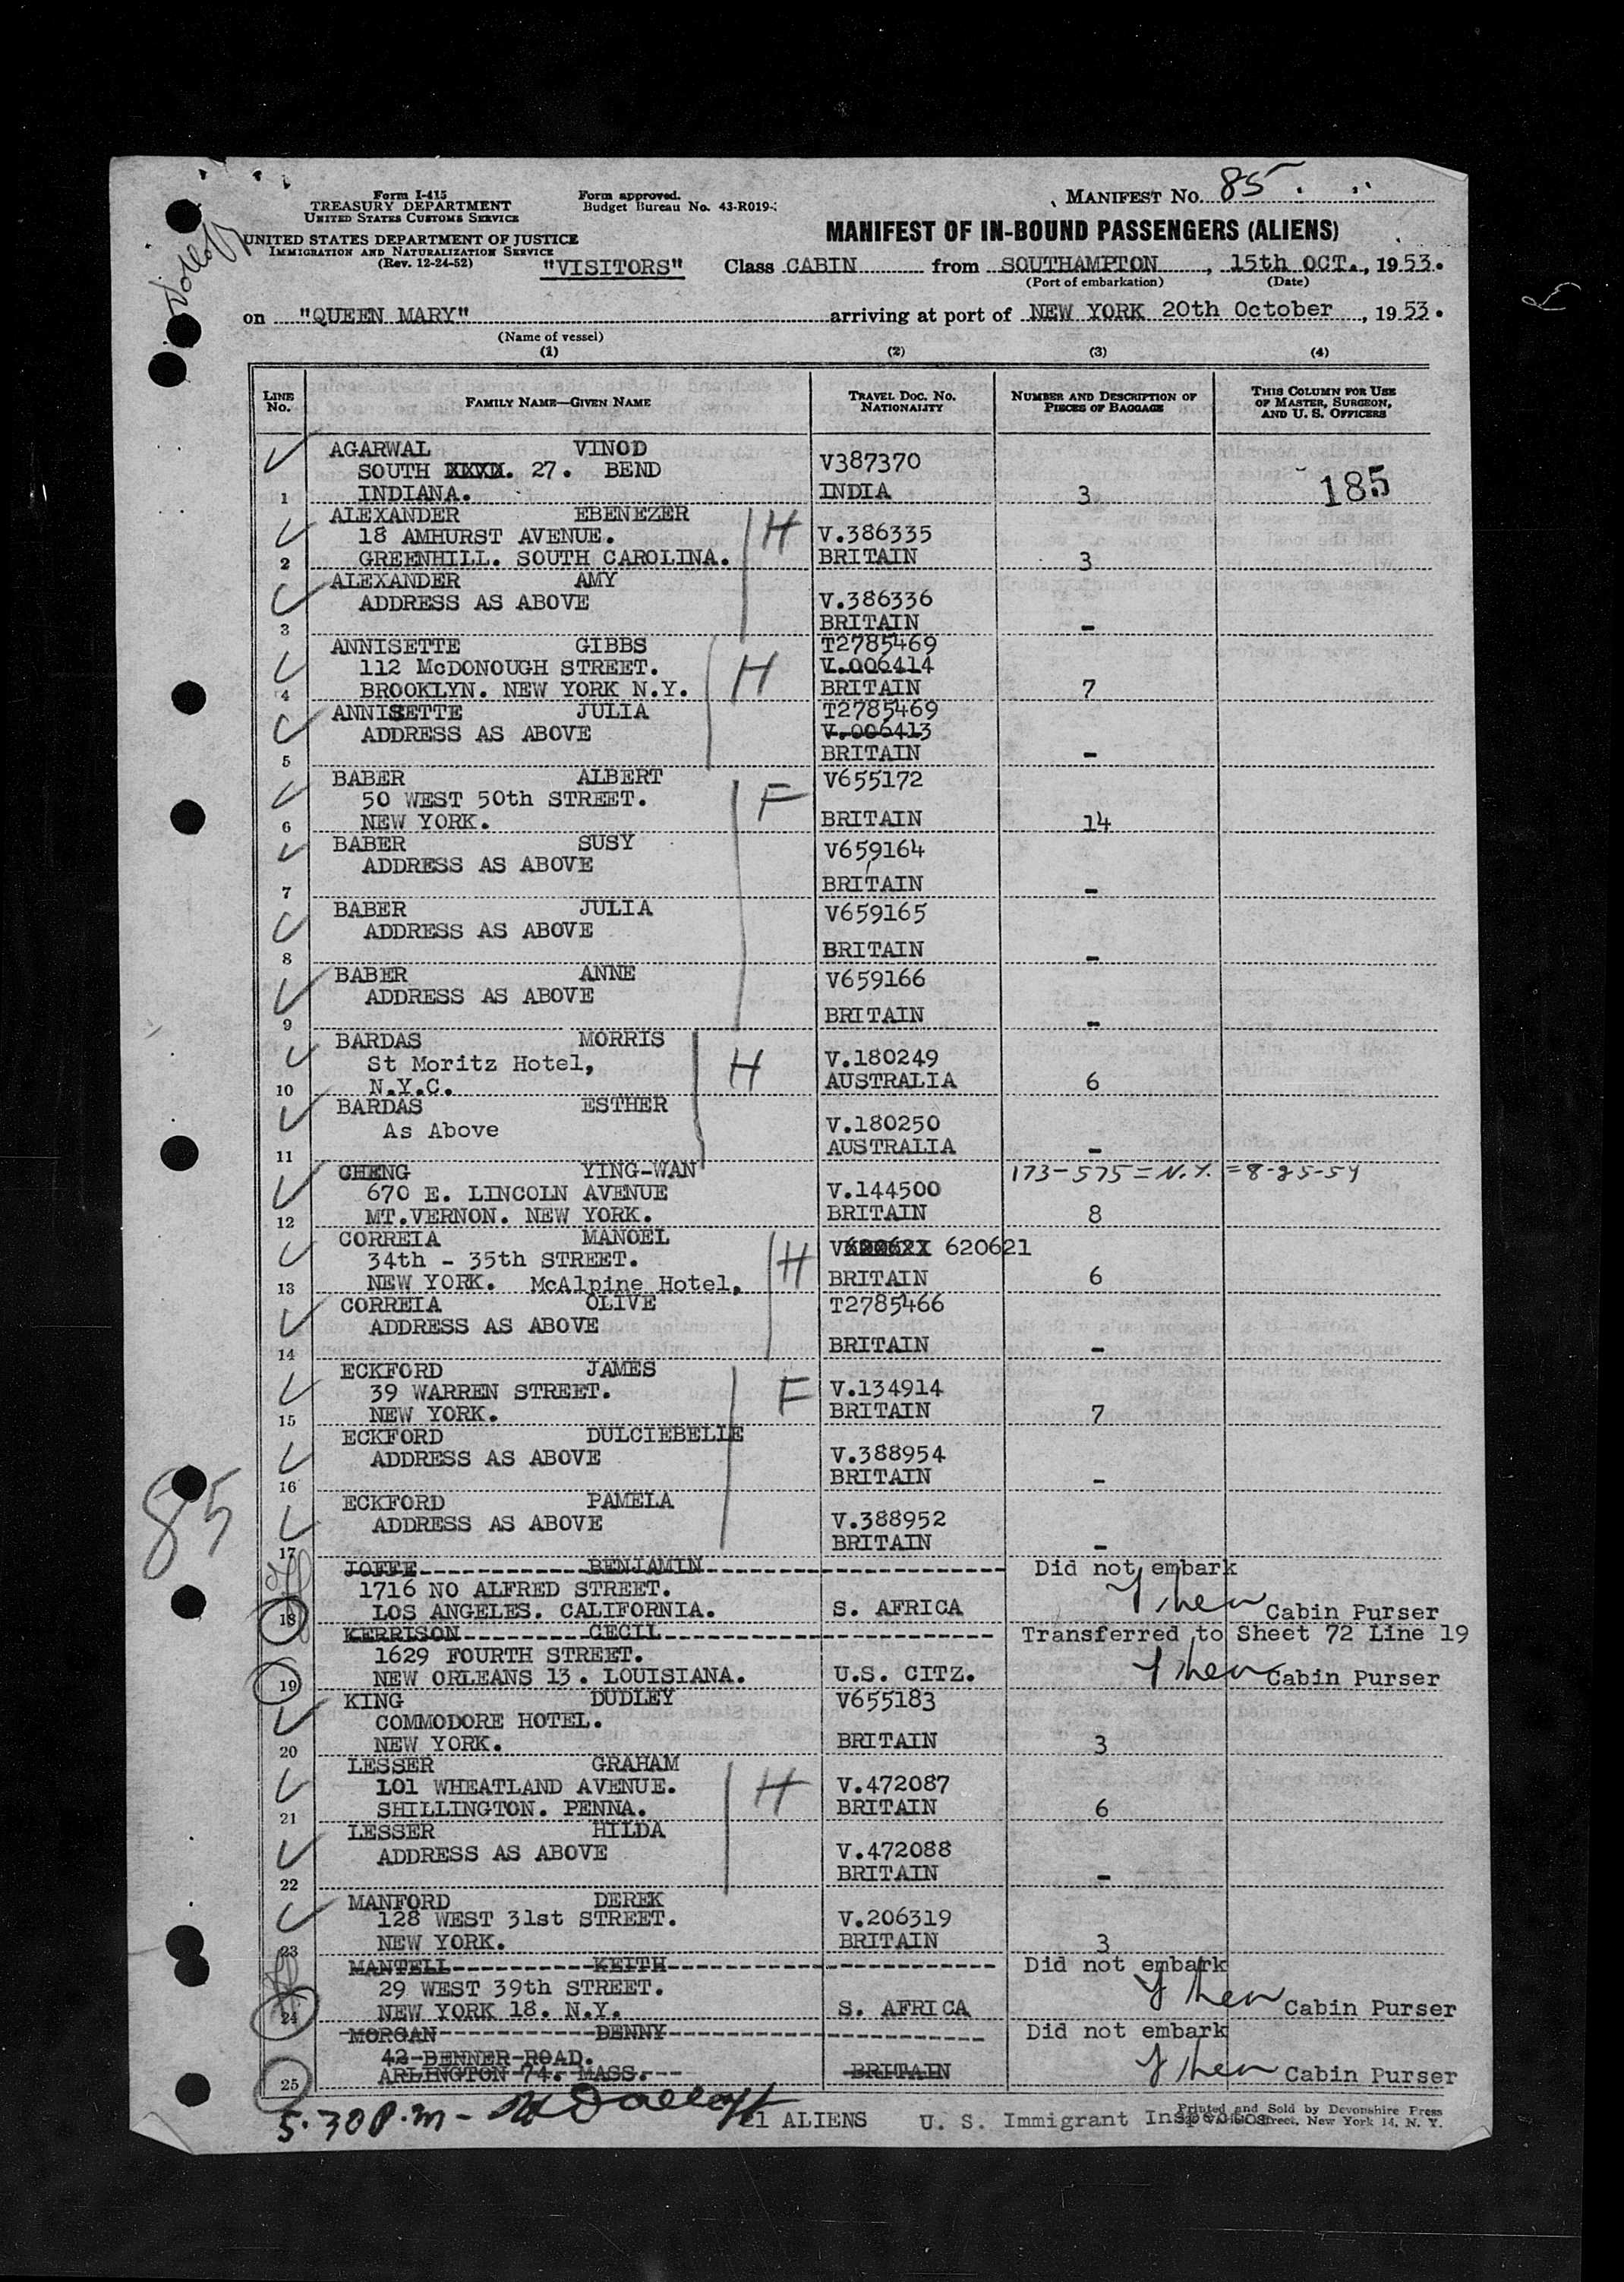 Form I-415
TREASURY DEPARTMENT
UNITED STATES CUSTOMS SERVICE
Form approved.
Budget Bureau No. 43-R019-
MANIFEST NO. 85
UNITED STATES DEPARTMENT OF JUSTICE
IMMIGRATION AND NATURALIZATION SERVICE
(Rev. 12-24-52)
MANIFEST OF IN-BOUND PASSENGERS (ALIENS)
"VISITORS" Class CABIN from SOUTHAMPTON, 15th OCT., 1953.
(Port of embarkation) (Date)
on "QUEEN MARY" arriving at port of NEW YORK 20th October, 1953.
(Name of vessel)
(1) (2) (3) (4)
LINE No. FAMILY NAME—GIVEN NAME TRAVEL DOC. NO. NATIONALITY NUMBER AND DESCRIPTION OF PIECES OF BAGGAGE THIS COLUMN FOR USE OF MASTER, SURGEON, AND U. S. OFFICERS
AGARWAL VINOD
SOUTH XXXX. 27. BEND V387370
1 INDIANA. INDIA 3 185
ALEXANDER EBENEZER H
18 AMHURST AVENUE. V.386335
2 GREENHILL. SOUTH CAROLINA. BRITAIN 3
ALEXANDER AMY
ADDRESS AS ABOVE V.386336
3 BRITAIN -
ANNISETTE GIBBS T2785469
112 McDONOUGH STREET. H V.006414
4 BROOKLYN. NEW YORK N.Y. BRITAIN 7
ANNISETTE JULIA T2785469
ADDRESS AS ABOVE V.006413
5 BRITAIN -
BABER ALBERT V655172
50 WEST 50th STREET. F
6 NEW YORK. BRITAIN 14
BABER SUSY V659164
ADDRESS AS ABOVE
7 BRITAIN -
BABER JULIA V659165
ADDRESS AS ABOVE
8 BRITAIN -
BABER ANNE V659166
ADDRESS AS ABOVE
9 BRITAIN -
BARDAS MORRIS
St Moritz Hotel, H V.180249
10 N.Y.C. AUSTRALIA 6
BARDAS ESTHER
As Above V.180250
11 AUSTRALIA -
CHENG YING-WAN 173-575=N.Y.=8-25-54
670 E. LINCOLN AVENUE V.144500
12 MT.VERNON. NEW YORK. BRITAIN 8
CORREIA MANOEL V 620621
34th - 35th STREET. H
13 NEW YORK. McAlpine Hotel, BRITAIN 6
CORREIA OLIVE T2785466
ADDRESS AS ABOVE
14 BRITAIN -
ECKFORD JAMES
39 WARREN STREET. F V.134914
15 NEW YORK. BRITAIN 7
ECKFORD DULCIEBELLE
ADDRESS AS ABOVE V.388954
16 BRITAIN -
ECKFORD PAMELA
ADDRESS AS ABOVE V.388952
17 BRITAIN -
85
JOFFE BENJAMIN Did not embark
1716 NO ALFRED STREET.
18 LOS ANGELES. CALIFORNIA. S. AFRICA Cabin Purser
KERRISON CECIL Transferred to Sheet 72 Line 19
1629 FOURTH STREET.
19 NEW ORLEANS 13. LOUISIANA. U.S. CITZ. Cabin Purser
KING DUDLEY V655183
COMMODORE HOTEL.
20 NEW YORK. BRITAIN 3
LESSER GRAHAM
101 WHEATLAND AVENUE. H V.472087
21 SHILLINGTON. PENNA. BRITAIN 6
LESSER HILDA
ADDRESS AS ABOVE V.472088
22 BRITAIN -
MANFORD DEREK
128 WEST 31st STREET. V.206319
23 NEW YORK. BRITAIN 3
MANTELL KEITH Did not embark
29 WEST 39th STREET.
24 NEW YORK 18. N.Y. S. AFRICA Cabin Purser
MORGAN DENNY Did not embark
42 BENNER ROAD.
25 ARLINGTON 74. MASS. BRITAIN Cabin Purser
5.30 P.m - 21 ALIENS U. S. Immigrant Inspector
Printed and Sold by Devonshire Press
Street, New York 14, N. Y.